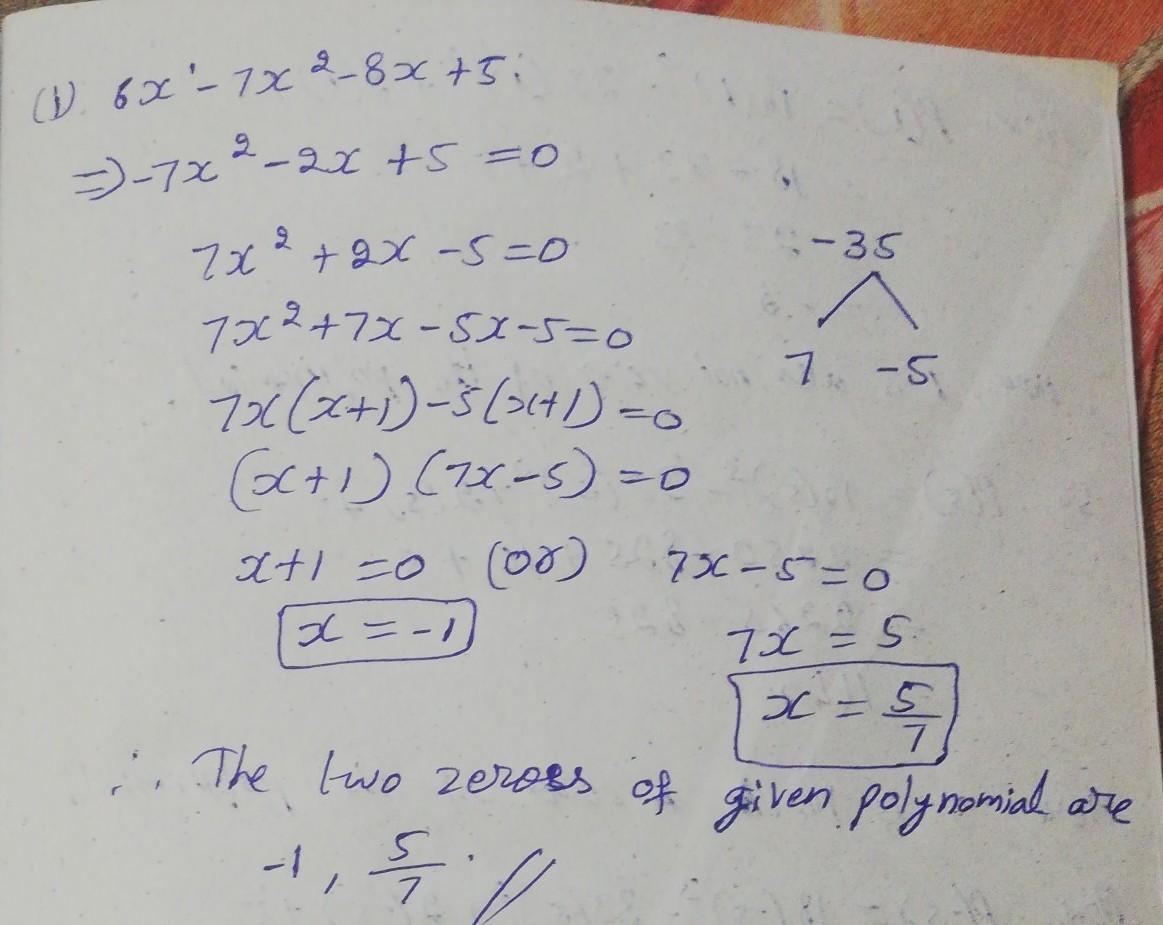 (1) 6x' - 7x² - 8x + 5.
=> -7x² - 2x + 5 = 0
7x² + 2x - 5 = 0
-35
7x² + 7x - 5x - 5 = 0
7 -5
7x(x+1) - 5(x+1) = 0
(x+1) (7x-5) = 0
x+1 = 0 (or) 7x - 5 = 0
x = -1
7x = 5
x = 5/7
∴ The two zeroes of given polynomial are
-1, 5/7.